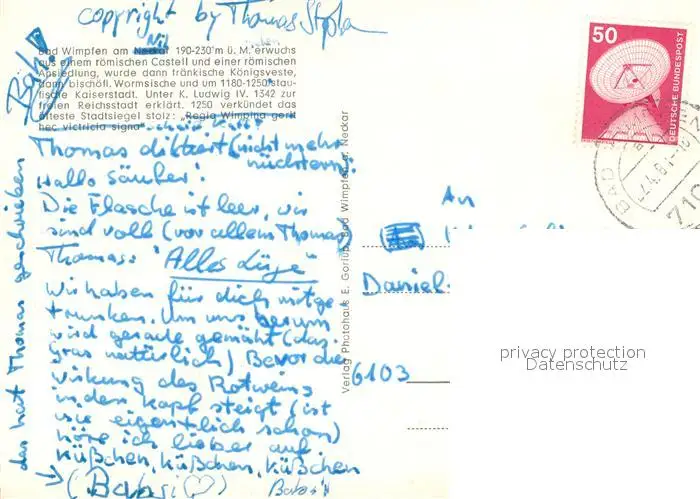 copyright by Thomas
Bad Wimpfen am Neckar 190-230 m ü. M. erwuchs
aus einem römischen Castell und einer römischen
Ansiedlung, wurde dann fränkische Königsveste,
dann bischöfl. Wormsische und um 1180-1250 stau-
fische Kaiserstadt. Unter K. Ludwig IV. 1342 zur
freien Reichsstadt erklärt. 1250 verkündet das
älteste Stadtsiegel stolz: „Regia Wimpina gerit
hec victricia signa"
Thomas diktiert (nicht mehr
nüchtern):
Hallo säuber!
Die Flasche ist leer, wir
sind voll (vor allem Thomas)
Thomas: "Alles Lüge"
Wir haben für dich mitge-
trunken. Um uns herum
wird gerade gemäht (das
Gras natürlich) Bevor die
Wirkung des Rotweins
in den Kopf steigt (ist
sie eigentlich schon)
höre ich lieber auf.
Küßchen, Küßchen, Küßchen
(Babsi ♡)
Babsi
das hat Thomas geschrieben
Verlag Photohaus E. Gorius, Bad Wimpfen a. Neckar
50
DEUTSCHE BUNDESPOST
BAD
710
An
Daniel
6103
privacy protection
Datenschutz